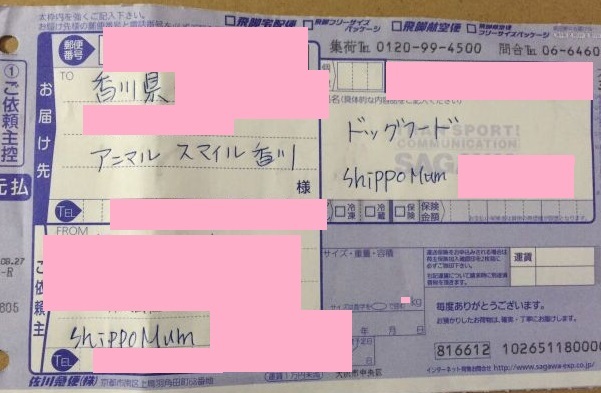 太枠内を強くご記入下さい。
飛脚宅配便
飛脚フリーサイズ
パッケージ
飛脚航空便
飛脚航空便
フリーサイズパッケージ
郵便
番号
集荷℡ 0120-99-4500 問合℡ 06-6460
①ご依頼主控
元払
お届け先
TO
香川県
アニマル スマイル香川
様
TEL
ドッグフード
SPORT!
COMMUNICATION
SAGAWA
ShippoMum
冷凍
冷蔵
保険
保険
金額
FROM
ご依頼主
ShippoMum
TEL
サイズ・重量・容積
kg
年 月 日
運賃
毎度ありがとうございます。
お預かりしたお荷物は、確実・丁寧にお届けします。
816612 102651180000
インターネット荷物お問合せ http://www.sagawa-exp.co.jp/
08.27
-R
605
佐川急便(株)
大阪市中央区